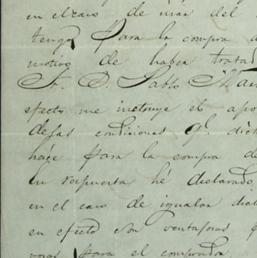 en el caso de usar del
tenga para la compra
motivo de haber tratad
Sr. D. Pablo
efecto me instruye el apo
dejas condiciones q. dich
hace para la compra de
en respuesta hé declarado
en el caso de igualar dich
en efecto son ventajosas
para el comprador